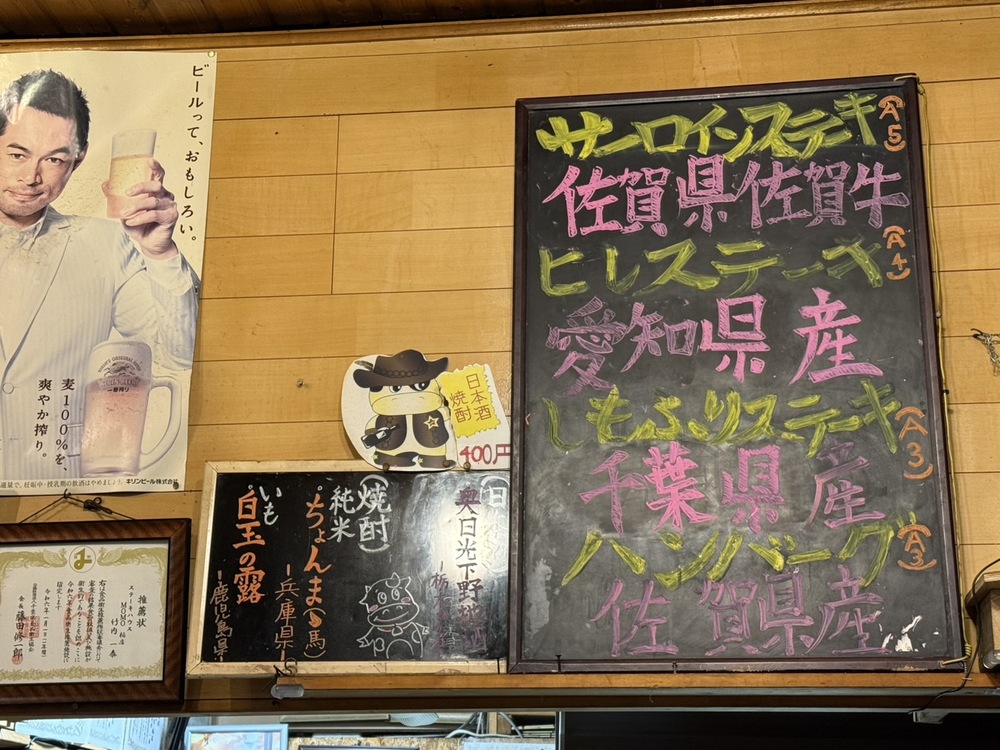 ビールって、おもしろい。
麦100％を、
爽やか搾り。
一番搾り
キリンビール株式会社
推薦状
ステーキハウス
MOMO 柏店
竹内一泰
指定します
令和六年一月一日
会長
日本酒
焼酎
400円
日
奥日光下野
(焼酎)
純米
ちょんまる(馬)
ー兵庫県ー
いも
白玉の露
ー鹿児島県ー
サーロインステーキ(A5)
佐賀県佐賀牛
ヒレステーキ(A4)
愛知県産
しもふりステーキ(A3)
千葉県産
ハンバーグ(A3)
佐賀県産